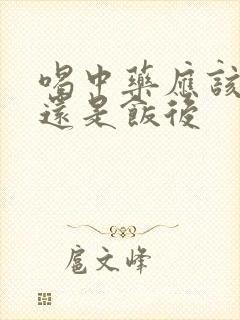 喝中藥應該
還是飯後
扈文峰